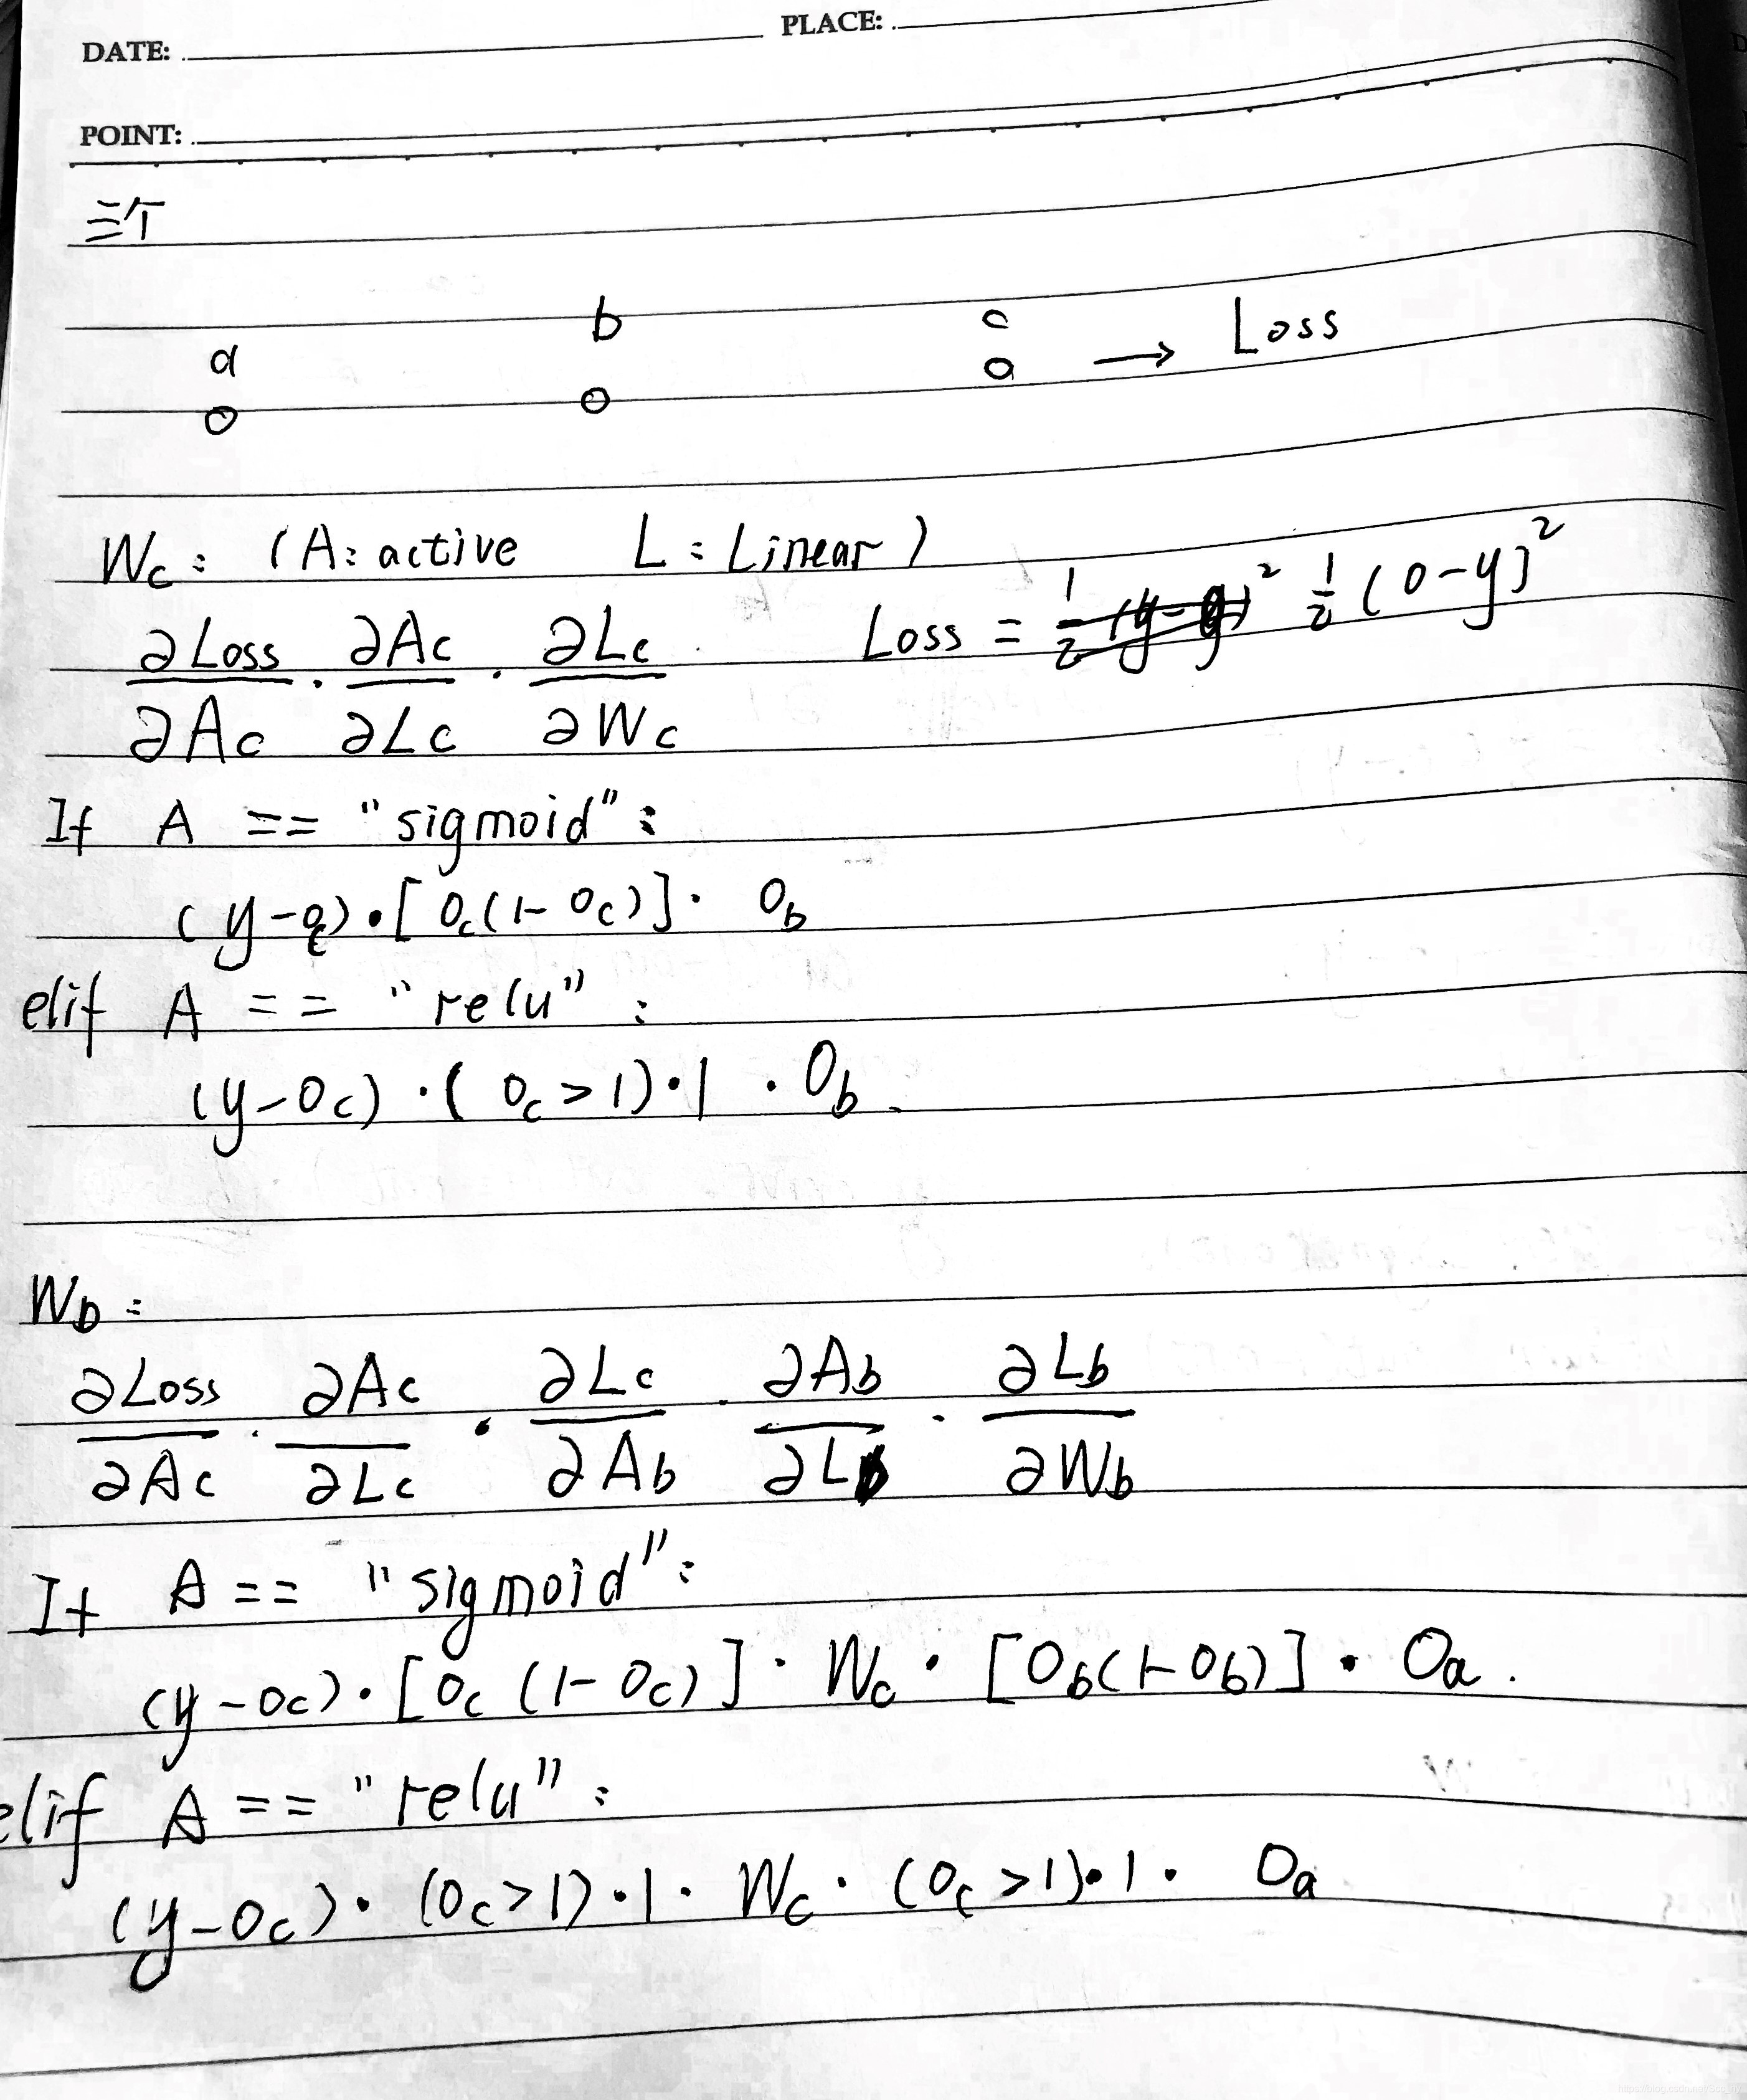 DATE: PLACE:
POINT:
三个
a b c
→ Loss
Wc: (A: active L: Linear)
∂Loss/∂Ac · ∂Ac/∂Lc · ∂Lc/∂Wc Loss = ½(O-y)²
If A == "sigmoid":
(y-Oc)·[Oc(1-Oc)]· Ob
elif A == "relu":
(y-Oc)·(Oc>1)·1 · Ob.
Wb:
∂Loss/∂Ac · ∂Ac/∂Lc · ∂Lc/∂Ab · ∂Ab/∂Lb · ∂Lb/∂Wb
If A == "sigmoid":
(y-Oc)·[Oc(1-Oc)]· Wc ·[Ob(1-Ob)]· Oa.
elif A == "relu":
(y-Oc)·(Oc>1)·1· Wc ·(Oc>1)·1· Oa